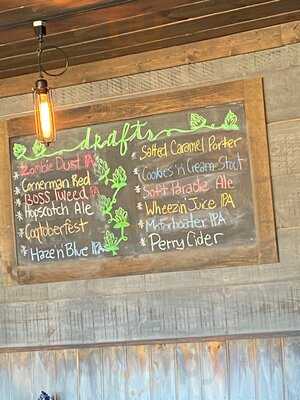 drafts
* Zombie Dust IPA
* Cornerman Red
* Boss Tweed IPA
* Hopscotch Ale
* Coptoberfest
* Haze n' Blue IPA
* Salted Caramel Porter
* Cookies 'n Cream Stout
* Soft Parade Ale
* Wheezin' Juice IPA
* Motorboater IPA
* Perry Cider